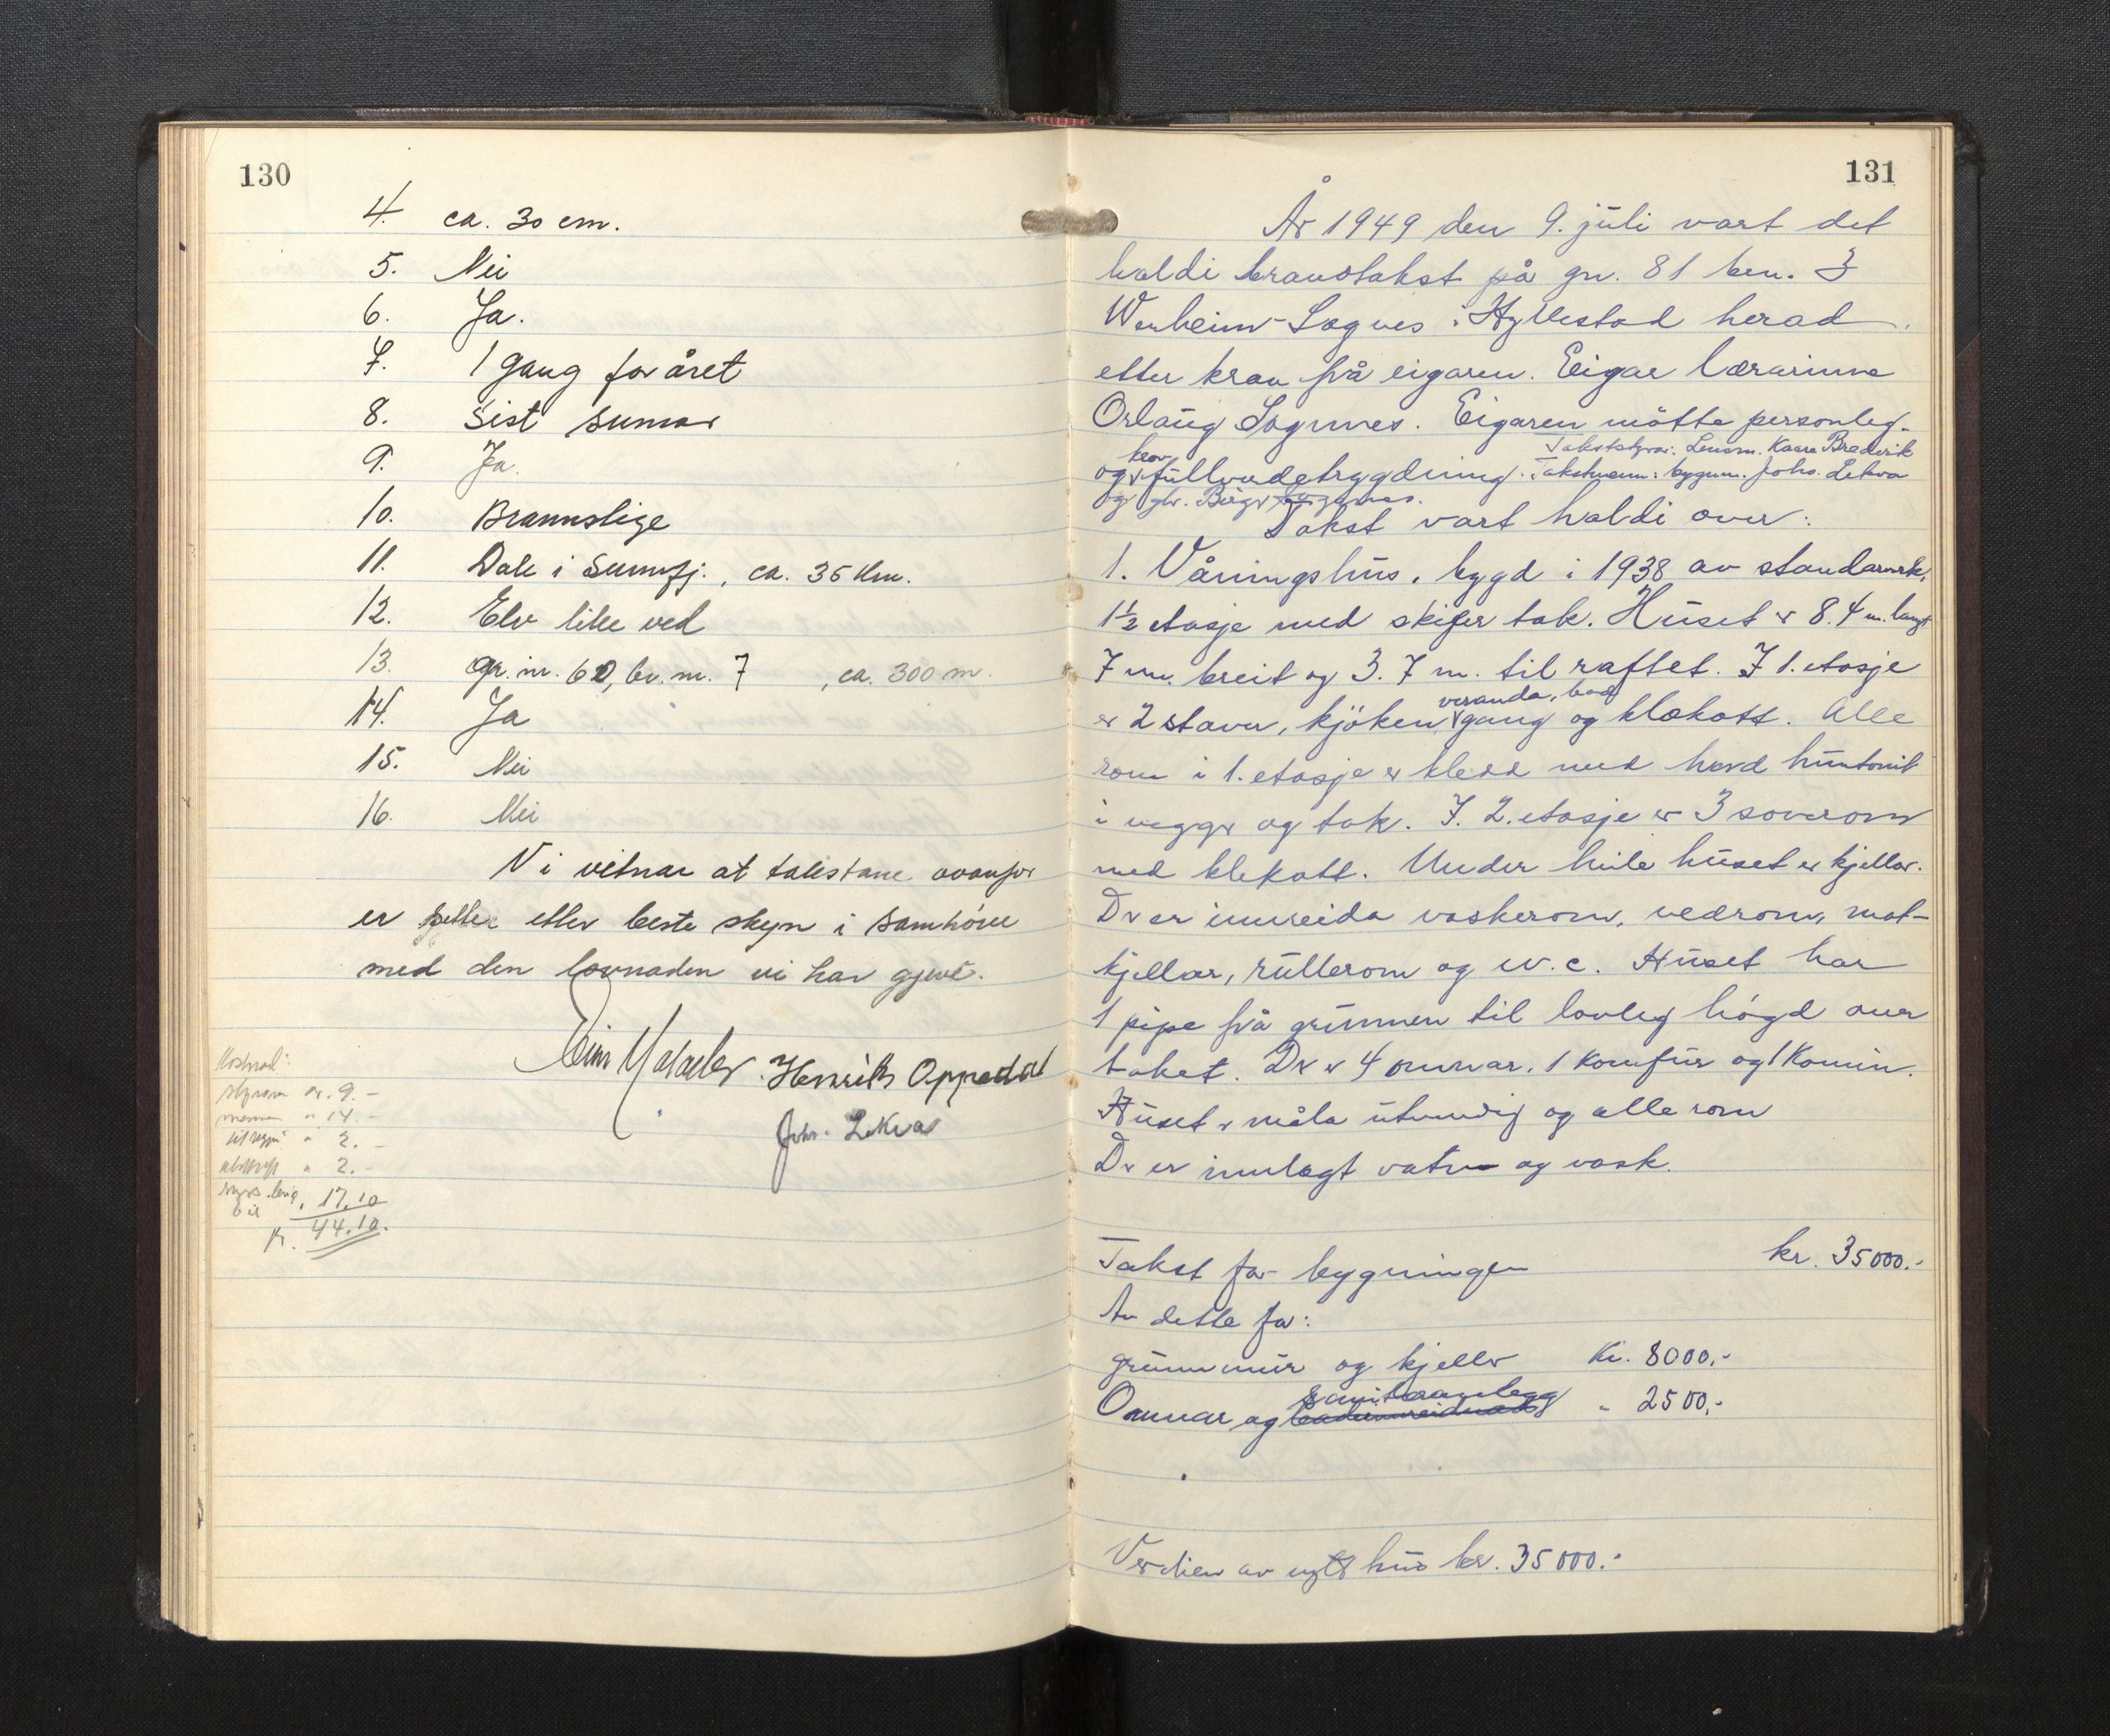 130
4. ca. 30 cm.
5. Nei
6. Ja.
7. 1 gang for året
8. Sist sumar
9. Ja.
10. Brannstige
11. Dale i Sunnfj., ca. 35 km.
12. Elv like ved
13. gr. nr. 60, br. nr. 7 , ca. 300 m.
14. Ja
15. Nei
16. Nei
Vi vitnar at takstane ovanfor
er sette etter beste skyn i samhöve
med den lovnaden vi har gjevé.
Henrik Oppedal
Joh. Lekva
Kostnad:
kr. 9.-
mennm " 14.-
" 2.-
" 2.-
bil 17,10
Kr. 44,10.
131
År 1949 den 9. juli vart det
haldi brandtakst på gn. 81 bn. 3
Werheim-Sognes i Hyllestad herad.
etter krav frå eigaren. Eigar lærarinne
Orlaug Sognnes. Eigaren mötte personleg.
krov Takststyrar: Lensm. Kaare Bredvik
og fullverdetrygdning. Takstmenn: bygnm. Joh. Lekva
og gbr. Birger Sognnes.
Takst vart haldi over:
1. Våningshus, bygd i 1938 av standarverk,
1½ etasje med skifer tak. Huset er 8.4 m. langt
7 m. breit og 3.7 m. til raftet. I 1. etasje
veranda, bad
er 2 stover, kjöken, gang og klekott. Alle
rom i 1. etasje er kledd med hard huntonit
i vegger og tak. I 2. etasje er 3 soverom
med klekott. Under heile huset er kjellar.
Der er innreida vaskerom, vedrom, mat-
kjellar, rullerom og w.c. Huset har
1 pipe frå grunnen til lovleg högd over
taket. Der er 4 omnar, 1 komfur og 1 Kamin.
Huset er måla utvendig og alle rom
Der er innlagt vatn og vask.
Takst for bygningen kr. 35000.-
Av dette for:
grunnmur og kjeller Kr. 8000,-
sanitæranlegg
Omnar og badeinnreidnad " 2500,-
Verdien av nytt hus kr. 35000.-